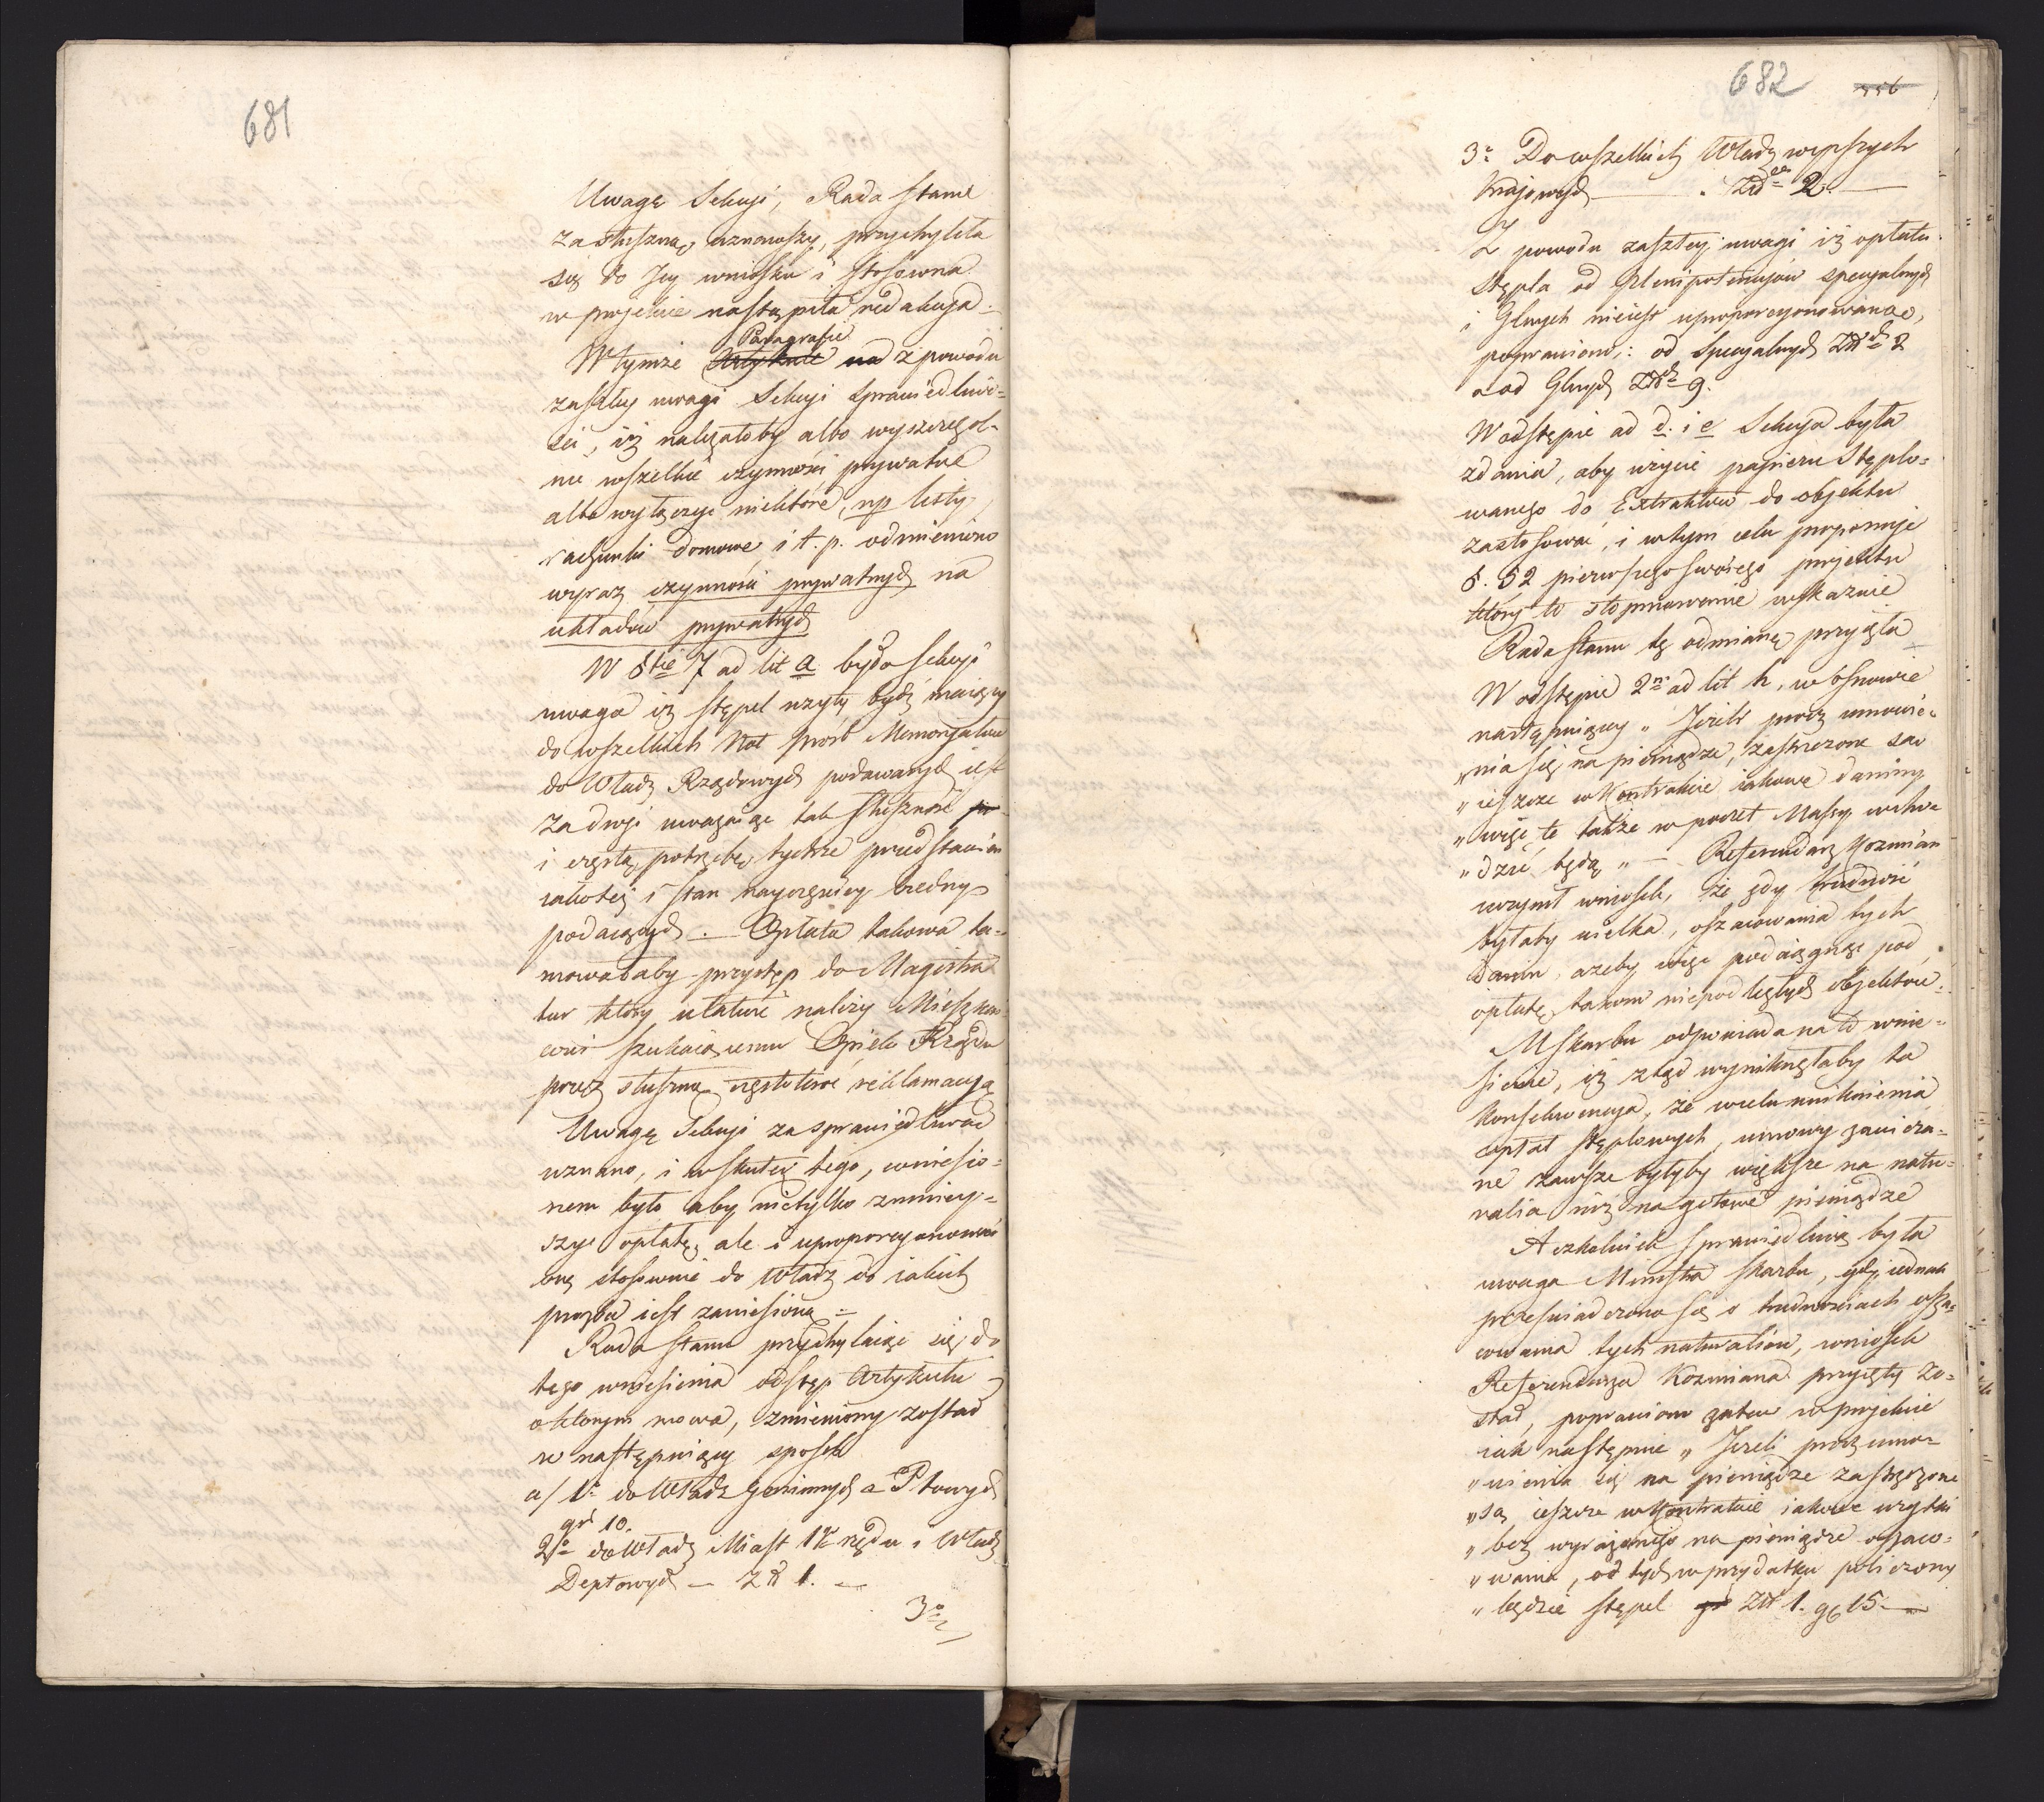 681
Uwagę Sekcyi, Rada Stanu
za słuszną uznawszy, przychyliła
się do Jey wniosku i stosowna
w projekcie nastąpiła redakcyja
Paragrafie
W tymże Artykule na z powodu
zaszłey uwagi Sekcyi Sprawiedliwo=
ści, iż należałoby albo wyszczegol-
nić wszelkie czynności prywatne
albo wyłączyć niektóre, np listy,
rachunki domowe i t. p. odmieniono
wyraz czynności prywatnych na
układów prywatnych
W §fie 7 ad lit a była Sekcyi
uwaga iż stępel użyty bydź maiący
do wszelkich Not prośb Memoryałów
do Władz Rządowych podawanych iest
za drogi uważaiąc tak słuszność
i częstą potrzebę tychże przedstawień
iakoteż i stan nayczęściey biedny
podaiących. Opłata takowa ta-
mowałaby przystęp do Magistra
tur który ułatwić należy Mieszkań
cowi szukaiącemu Opieki Rządu
przez słuszną częstokroć reklamacyą
Uwagę Sekcyi za sprawiedliwą
uznano, i wskutek tego, wniesio=
nem było aby nietylko zmniey=
szyć opłatę, ale i uproporcyonować
onę stosownie do Władz do iakich
prozba iest zaniesioną =
Rada Stanu przychylaiąc się do
tego wniesienia odstęp Artykułu
o którym mowa, zmieniony został
w następuiący sposób
a/ 1o do Władz Gminnych a Ptowych
gr 10.
2do do Władz Miast 1go rzędu i Władz
Deptowych — Zł 1. —
3o
682 356
3o Do wszelkich Władz wyższych
Kraiowych — . Zł 2. —
Z powodu zaszłey uwagi iż opłata
stępla od Plenipotencyiów specyalnych
i Glnych nieiest uproporcyonowana,
poprawiono: od Specyalnych Zł 2
a od Glnych Zł 9.
W odstępie ad d. i e Sekcya była
zdania, aby użycie papieru Stęplo=
wanego do Extraktów do objektu
zastosować, i w tym celu proponuje
§. 52 pierwszego swoiego projektu
który to stopniowanie wskazuie
Rada Stanu tę odmianę przyięła
W odstępie 2m ad lit h, w osnowie
następuiącey „ Jeżeli prócz umowie-
„ nia się na pieniądze, zastrzeżone są
„ ieszcze w Kontrakcie iakowe daniny
„ więc te także w poczet Massy wcho
„ dzić będą „ — Referendarz Kozmian
uczynił wniosek, że gdy trudność
byłaby wielka, oszacowania tych
Danin, ażeby więc podciągnąć pod
opłatę, niepodległych objektów.
M Skarbu odpowiada na to wnie=
sienie, iż ztąd wyniknęłaby ta
Konsekwencyja, że wcelu uniknienia
opłat stęplowych, umowy zawiera=
ne zawsze byłyby większe na natu=
ralia niż na gotowe pieniądze
Aczkolwiek sprawiedliwą była
uwaga Ministra Skarbu, gdy iednak
przeświadczono się o trudnościach osza=
cowania tych naturaliów, wniosek
Referendarza Kozmiana przyięty zo=
stał, poprawiono zatem w projekcie
iak następuie „ Jeżeli prócz umó=
„ wienia się na pieniądze zastrzeżone
„ są ieszcze w Kontrakcie iakowe użytki
„ bez wyrażonego na pieniądze oszaco=
„ wania, od tych w przydatku policzony
„ będzie stępel Zł 1. gr 15. —